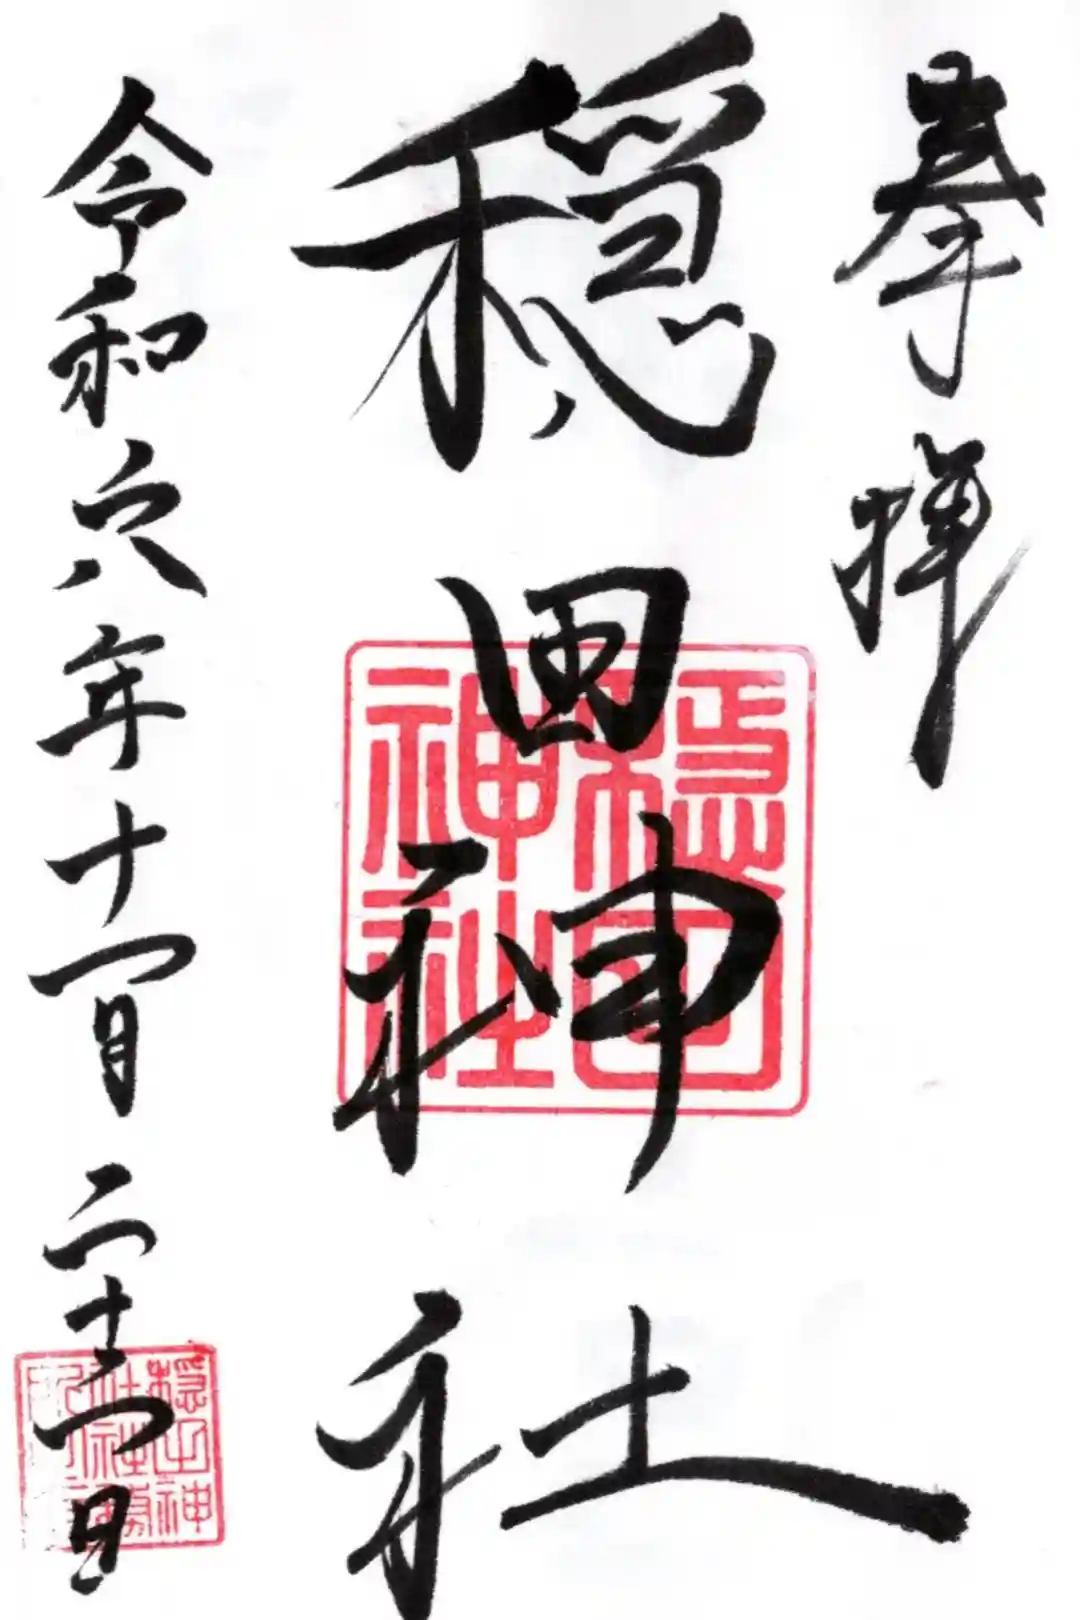 奉拝
穏田神社
令和六年十一月二十二日
穏田
神社
穏田神
社社務